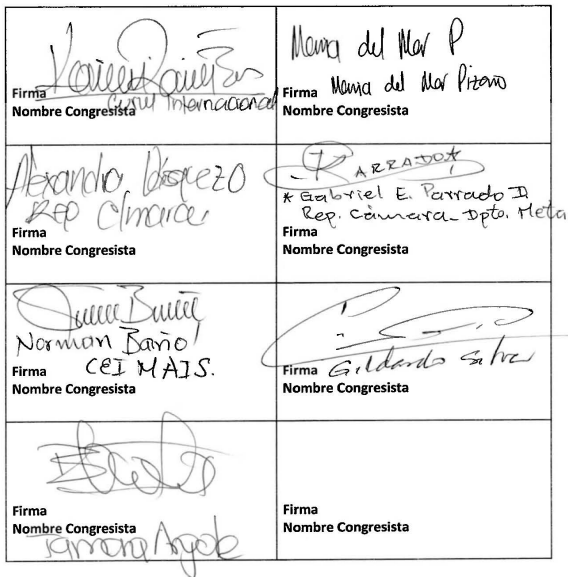 Firma
Curul Internacional
Nombre Congresista
Maria del Mar P
Firma Maria del Mar Pizarro
Nombre Congresista
Alexandra Vásquez O
Rep Cámara
Firma
Nombre Congresista
PARRADO
* Gabriel E. Parrado D
Rep. Cámara - Dpto. Meta
Firma
Nombre Congresista
Norman Bañol
Firma CEI MAIS.
Nombre Congresista
Firma Gildardo Silva
Nombre Congresista
Firma
Nombre Congresista
Tamara Argote
Firma
Nombre Congresista